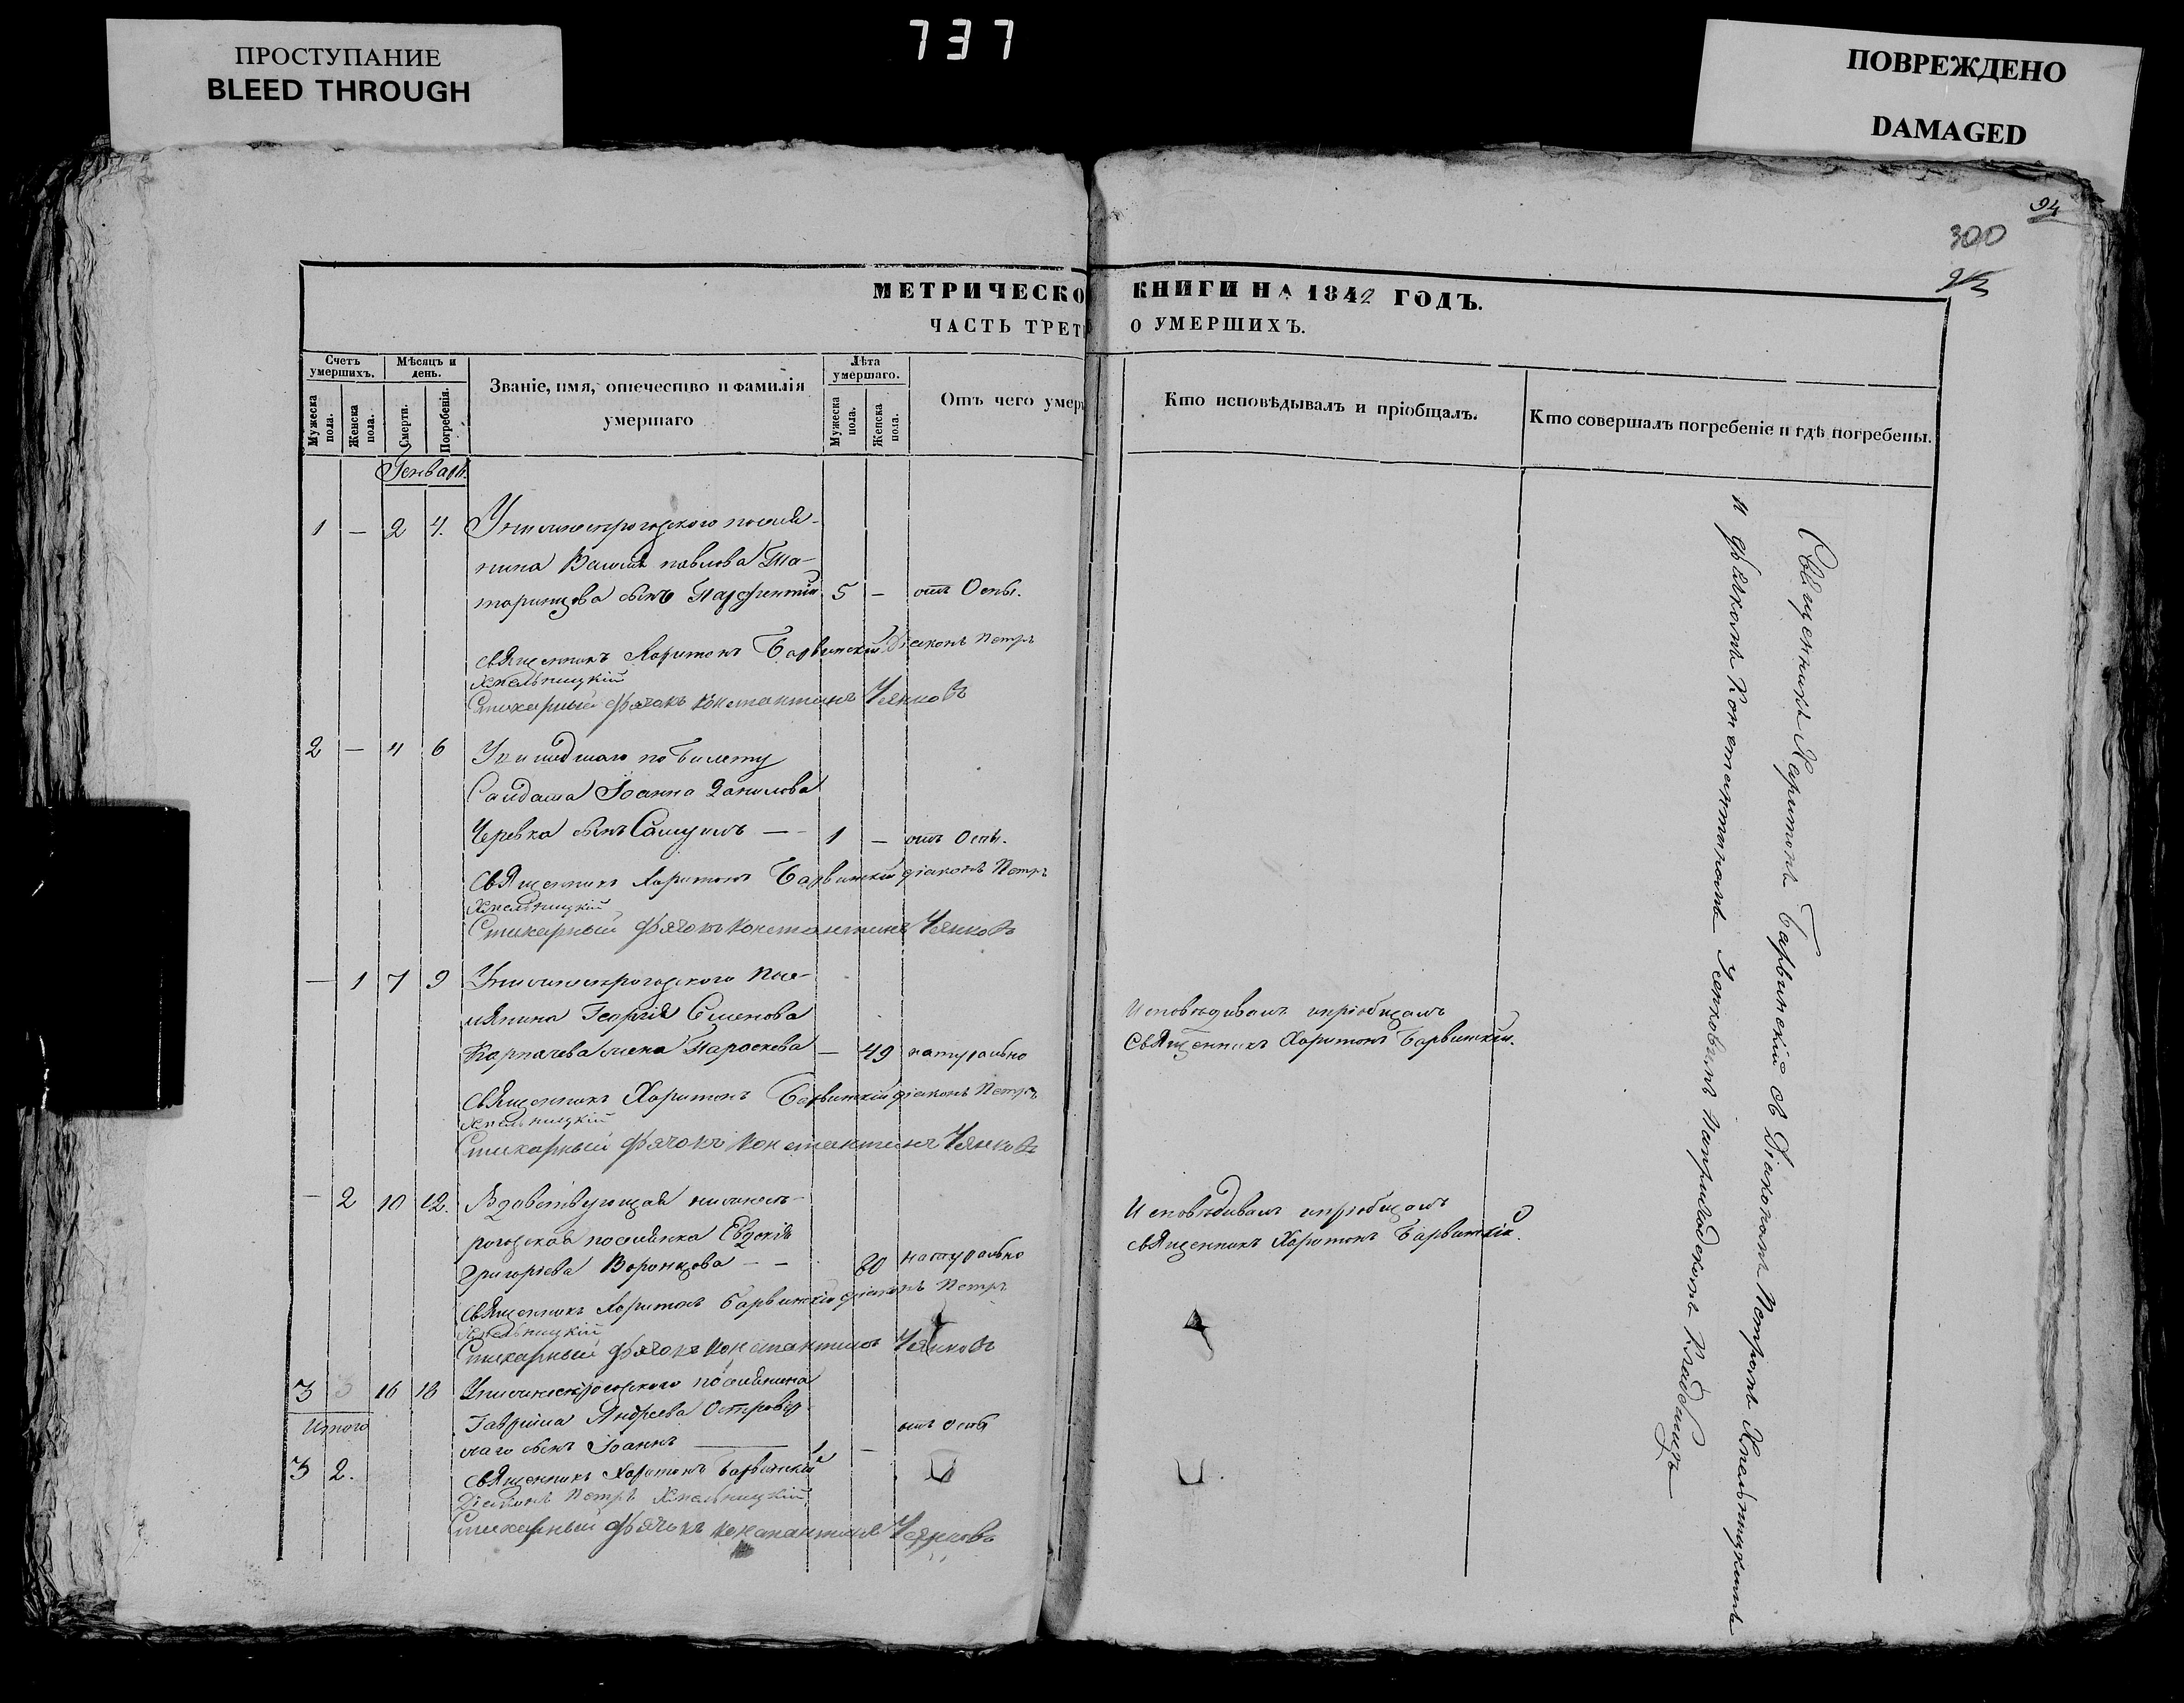 ПРОСТУПАНИЕ
BLEED THROUGH
737
ПОВРЕЖДЕНО
DAMAGED
94
300
МЕТРИЧЕСКО КНИГИ НА 1842 ГОДЪ.
ЧАСТЬ ТРЕТ О УМЕРШИХЪ.
Счетъ умершихъ.
Мужеска пола.
Женска пола.
Мѣсяцъ и день.
Смерти.
Погребенія.
Званіе, имя, отечество и фамилія умершаго
Лѣта умершаго.
Мужеска пола.
Женска пола.
Отъ чего умер
Кто исповѣдывалъ и пріобщалъ.
Кто совершалъ погребеніе и гдѣ погребены.
Генварь
1 — 2 4. посѣля-
нина Павлова Та-
таринцова сынъ Парфентій 5 — отъ Оспы.
Священникъ Харитонъ Барвинскій Діаконъ Петръ
Хмельницкій
Стихарный дячокъ Константинъ
2 — 4 6 по билету
Салдата Іоанна Данилова
Черевка сынъ Самуилъ — 1 — отъ Оспы.
Священникъ Харитонъ Барвинскій діаконъ Петръ
Хмельницкій
Стихарный дячокъ Константинъ
— 1 7 9 Посе-
лянина Георгія Семенова
жена Параскева — 49 натурально
Исповѣдивалъ и пріобщалъ
Священникъ Харитонъ Барвинскій.
Священникъ Харитонъ Барвинскій діаконъ Петръ
Хмельницкій
Стихарный дячокъ Константинъ
— 2 10 12. Вдовствующая
поселянка Евдокія
Григоріева Воронцова — — 60 натурально
Исповѣдивалъ и пріобщалъ
Священникъ Харитонъ Барвинскій.
Священникъ Харитонъ Барвинскій діаконъ Петръ
Хмельницкій
Стихарный дячокъ Константинъ
3 16 18 поселянина
Гавріила Андреева
сынъ Іоаннъ — 1 — отъ Оспы
Итого
3 2.
Священникъ Харитонъ Барвинскій
Діаконъ Петръ Хмельницкій
Стихарный дячокъ Константинъ
Священникъ Харитонъ Барвинскій съ Діакономъ Петромъ Хмельницкимъ
и дячкомъ Константиномъ на приходскомъ кладбищѣ